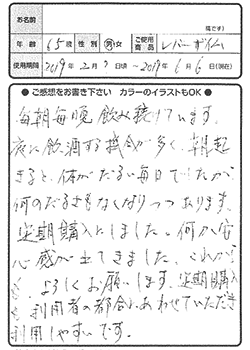 お名前
様です)
年齢 65歳 性別 男・女 ご使用商品 レバーザイム
使用期間 2019年2月 日頃~2019年6月6日(現在)
● ご感想をお書き下さい カラーのイラストもOK ●
毎朝毎晩飲み続けています。
夜に飲酒する機会が多く、朝起
きると、体がだるい毎日でしたが、
何のだるさもなくなりつつあります。
定期購入にしました。何か安
心感が出てきました。これから
よろしくお願いします。定期購入
利用者の都合にあわせていただき
利用しやすいです。